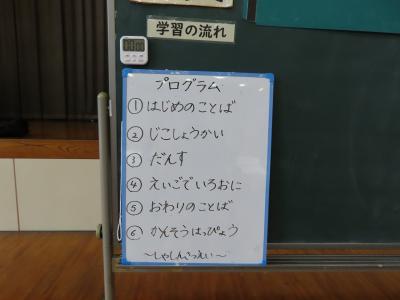 学習の流れ
プログラム
①はじめのことば
②じこしょうかい
③だんす
④えいごでいろおに
⑤おわりのことば
⑥かんそうはっぴょう
～しゃしんさつえい～